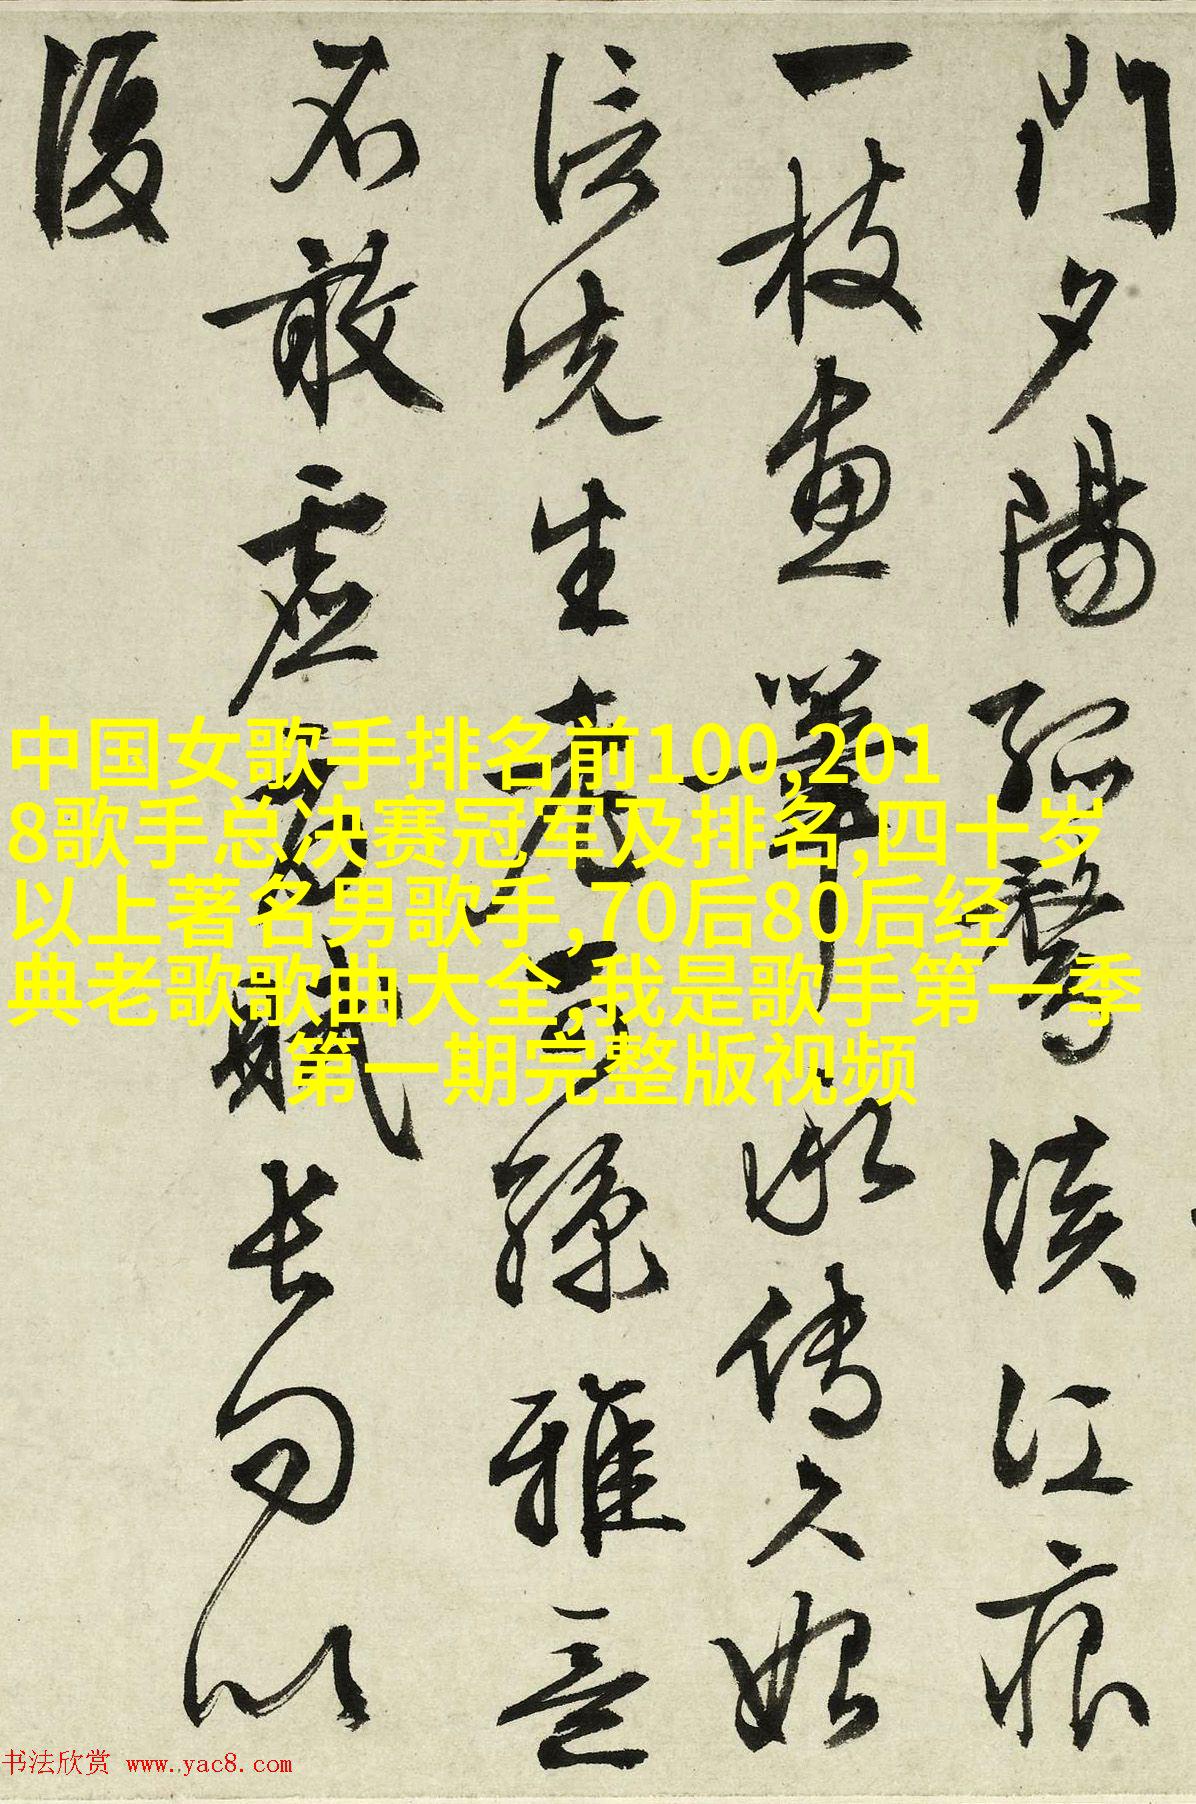 門夕陽孤鶩淡江痕
一枝畫筆承傳久始
信先生老可孫雅意
不敢虛為賦長句以
復
中国女歌手排名前100,201
8歌手总决赛冠军及排名,四十岁
以上著名男歌手,70后80后经
典老歌歌曲大全,我是歌手第一季
第一期完整版视频
书法欣赏 www.yac8.com